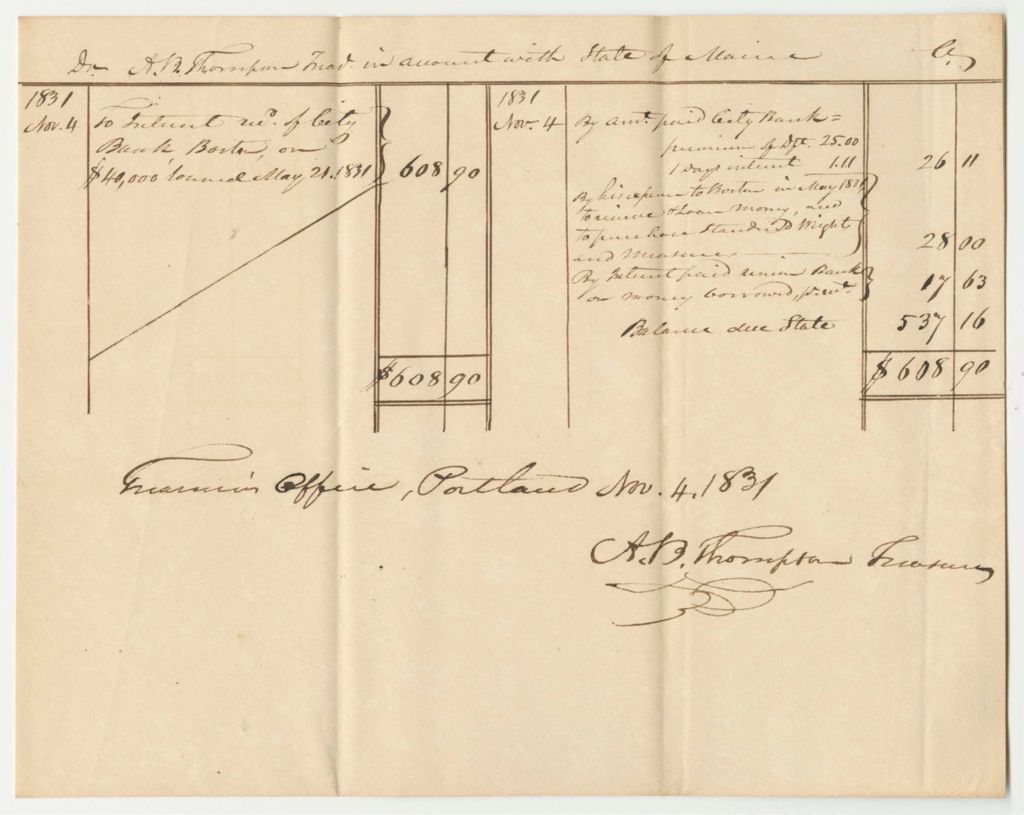 Dr. A.B. Thompson Trear. in account with State of Maine Cr.
1831
Nov. 4 To Interest rec'd. of City
Bank Boston, on
$40,000 loaned May 21. 1831 608 90
$608 90
1831
Nov. 4 By amt. paid City Bank =
premium of Dft. 25.00
1 Days interest 1.11 26 11
By his expense to Boston in May 1831
to receive & loan money, and
to purchase Standard Weights
and Measures 28 00
By Interest paid Union Bank
on money borrowed, 17 63
Balance due State 537 16
$608 90
Treasurer's Office, Portland Nov. 4. 1831
A.B. Thompson Treasurer